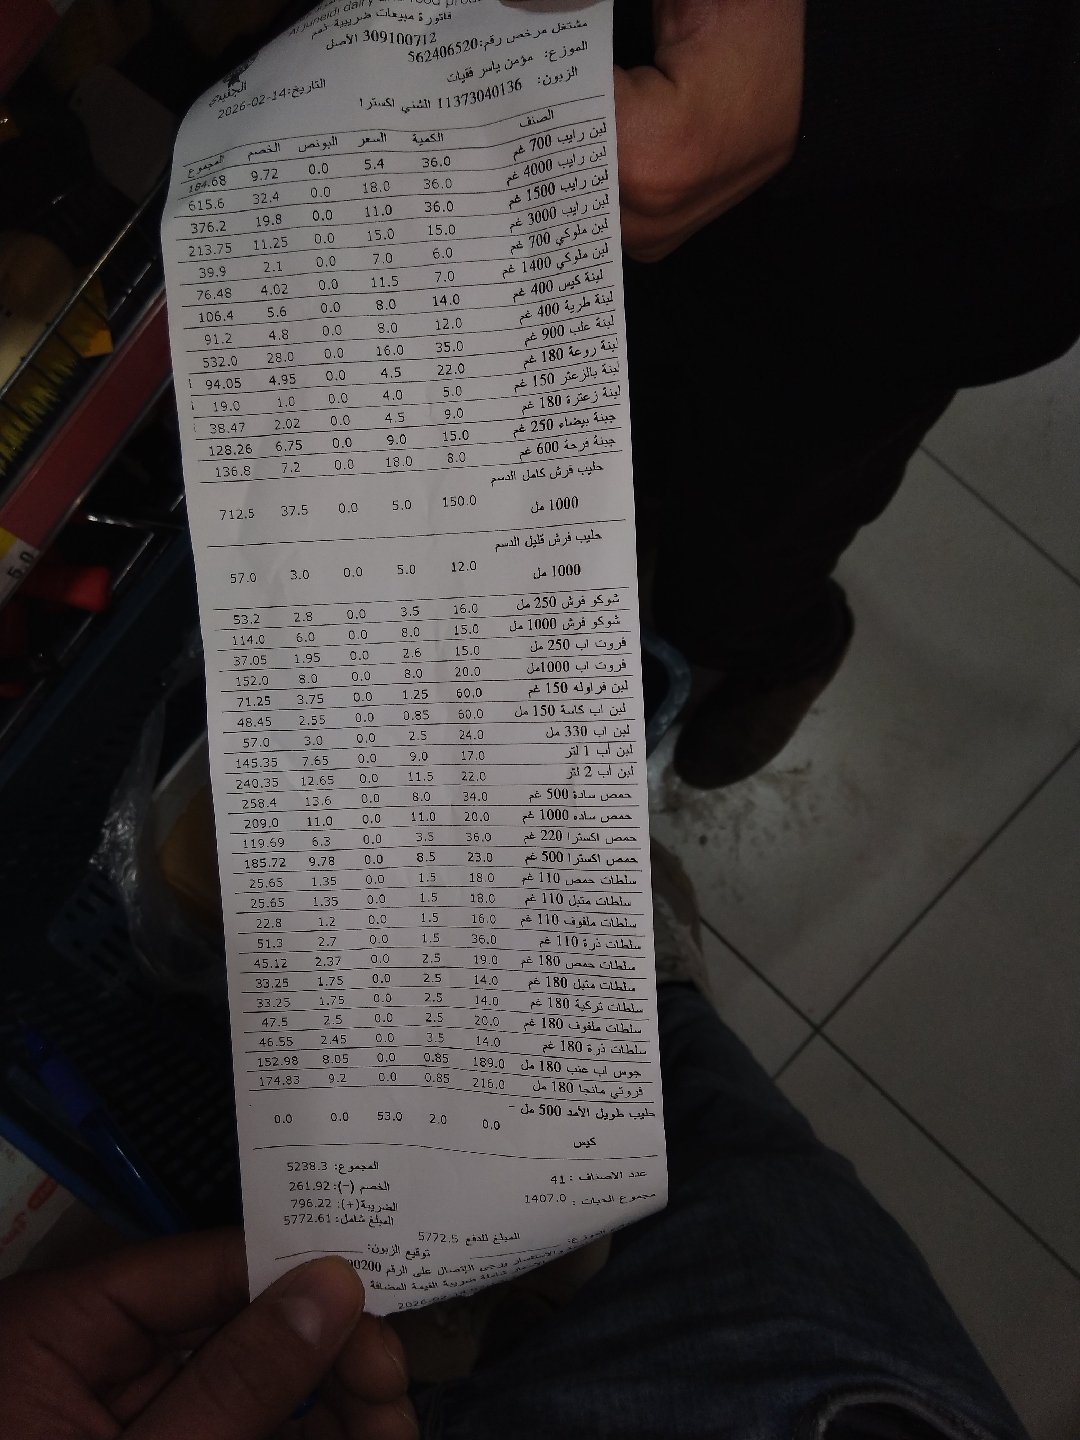 Aljuneidi dairy and food
فاتورة مبيعات ضريبية ذمم
309100712 الأصل
مشتغل مرخص رقم:562406520
الموزع: مؤمن ياسر فقيات
الزبون: 11373040136 الشني اكسترا
الجنيدي
التاريخ:14-02-2026
الصنف الكمية السعر البونص الخصم المجموع
لبن رايب 700 غم 36.0 5.4 0.0 9.72 184.68
لبن رايب 4000 غم 36.0 18.0 0.0 32.4 615.6
لبن رايب 1500 غم 36.0 11.0 0.0 19.8 376.2
لبن رايب 3000 غم 15.0 15.0 0.0 11.25 213.75
لبن ملوكي 700 غم 6.0 7.0 0.0 2.1 39.9
لبن ملوكي 1400 غم 7.0 11.5 0.0 4.02 76.48
لبنة كيس 400 غم 14.0 8.0 0.0 5.6 106.4
لبنة طرية 400 غم 12.0 8.0 0.0 4.8 91.2
لبنة علب 900 غم 35.0 16.0 0.0 28.0 532.0
لبنة روعة 180 غم 22.0 4.5 0.0 4.95 94.05
لبنة بالزعتر 150 غم 5.0 4.0 0.0 1.0 19.0
لبنة زعترة 180 غم 9.0 4.5 0.0 2.02 38.47
جبنة بيضاء 250 غم 15.0 9.0 0.0 6.75 128.26
جبنة فرحة 600 غم 8.0 18.0 0.0 7.2 136.8
حليب فرش كامل الدسم
1000 مل 150.0 5.0 0.0 37.5 712.5
حليب فرش قليل الدسم
1000 مل 12.0 5.0 0.0 3.0 57.0
شوكو فرش 250 مل 16.0 3.5 0.0 2.8 53.2
شوكو فرش 1000 مل 15.0 8.0 0.0 6.0 114.0
فروت اب 250 مل 15.0 2.6 0.0 1.95 37.05
فروت اب 1000مل 20.0 8.0 0.0 8.0 152.0
لبن فراوله 150 غم 60.0 1.25 0.0 3.75 71.25
لبن اب كاسة 150 مل 60.0 0.85 0.0 2.55 48.45
لبن اب 330 مل 24.0 2.5 0.0 3.0 57.0
لبن اب 1 لتر 17.0 9.0 0.0 7.65 145.35
لبن اب 2 لتر 22.0 11.5 0.0 12.65 240.35
حمص سادة 500 غم 34.0 8.0 0.0 13.6 258.4
حمص سادة 1000 غم 20.0 11.0 0.0 11.0 209.0
حمص اكسترا 220 غم 36.0 3.5 0.0 6.3 119.69
حمص اكسترا 500 غم 23.0 8.5 0.0 9.78 185.72
سلطات حمص 110 غم 18.0 1.5 0.0 1.35 25.65
سلطات متبل 110 غم 18.0 1.5 0.0 1.35 25.65
سلطات ملفوف 110 غم 16.0 1.5 0.0 1.2 22.8
سلطات ذرة 110 غم 36.0 1.5 0.0 2.7 51.3
سلطات حمص 180 غم 19.0 2.5 0.0 2.37 45.12
سلطات متبل 180 غم 14.0 2.5 0.0 1.75 33.25
سلطات تركية 180 غم 14.0 2.5 0.0 1.75 33.25
سلطات ملفوف 180 غم 20.0 2.5 0.0 2.5 47.5
سلطات ذرة 180 غم 14.0 3.5 0.0 2.45 46.55
جوس اب عنب 180 مل 189.0 0.85 0.0 8.05 152.98
فروتي مانجا 180 مل 216.0 0.85 0.0 9.2 174.83
حليب طويل الأمد 500 مل -
كيس 0.0 2.0 53.0 0.0 0.0
عدد الاصناف : 41
مجموع الحبات : 1407.0
المجموع: 5238.3
الخصم (-): 261.92
الضريبة(+): 796.22
المبلغ شامل: 5772.61
المبلغ للدفع 5772.5
توقيع الزبون:
يرجى الإتصال على الرقم 00200
شاملة ضريبة القيمة المضافة
5.0